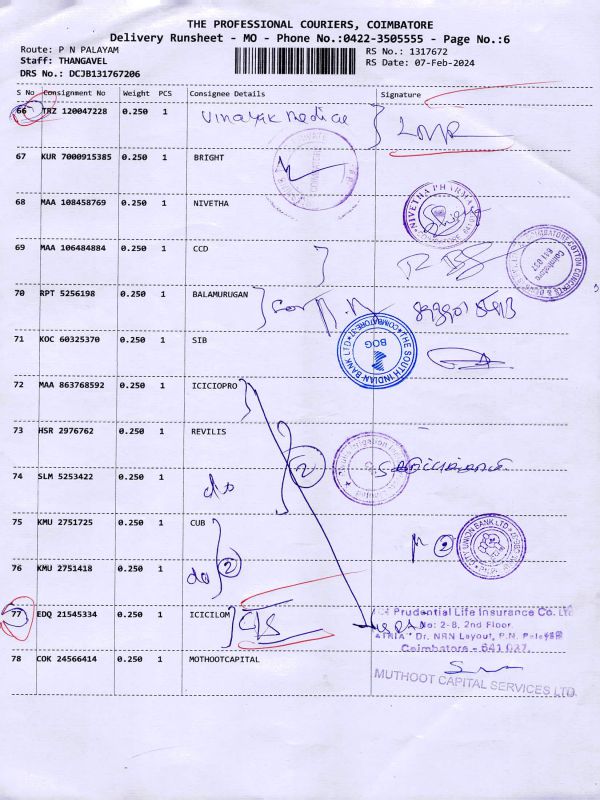 THE PROFESSIONAL COURIERS, COIMBATORE
Delivery Runsheet - MO - Phone No.:0422-3505555 - Page No.:6
Route: P N PALAYAM
RS No.: 1317672
Staff: THANGAVEL
RS Date: 07-Feb-2024
DRS No.: DCJB131767206
S No Consignment No Weight PCS Consignee Details Signature
66 TRZ 120047228 0.250 1 Vinayak Medical
67 KUR 7000915385 0.250 1 BRIGHT
68 MAA 108458769 0.250 1 NIVETHA
NIVETHA PHARMA
69 MAA 106484884 0.250 1 CCD
Coimbatore
641 037
70 RPT 5256198 0.250 1 BALAMURUGAN
71 KOC 60325370 0.250 1 SIB
THE SOUTH INDIAN BANK LTD
BOG
COIMBATORE
72 MAA 863768592 0.250 1 ICICIOPRO
73 HSR 2976762 0.250 1 REVILIS
2
74 SLM 5253422 0.250 1 do
75 KMU 2751725 0.250 1 CUB
2
CITY UNION BANK LTD
76 KMU 2751418 0.250 1 do 2
77 EDQ 21545334 0.250 1 ICICILOM
Prudential Life Insurance Co. Ltd
No: 2-8, 2nd Floor.
Dr. NRN Layout, P.N. Pala
Coimbatore - 641 037.
78 COK 24566414 0.250 1 MOTHOOTCAPITAL
MUTHOOT CAPITAL SERVICES LTD.